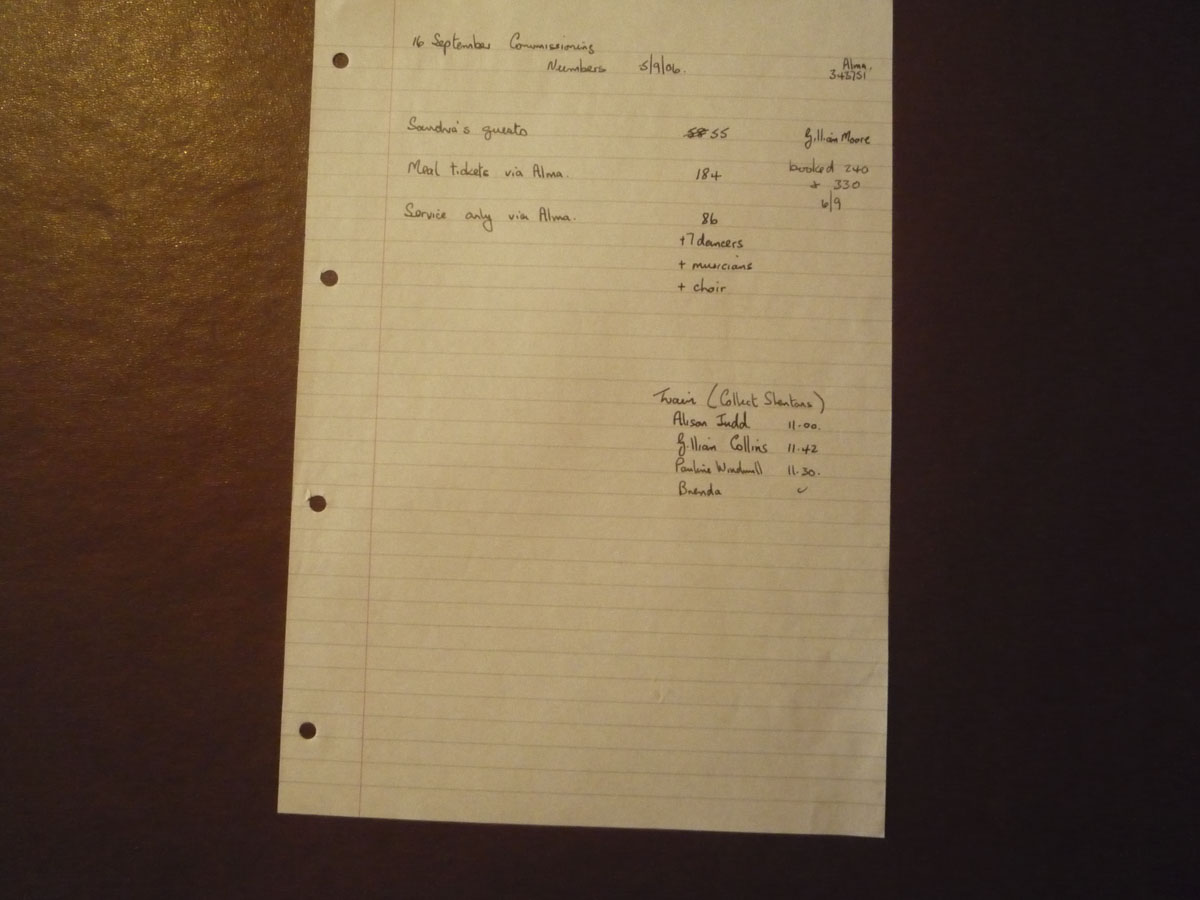 16 September Commissioning
Numbers 5/9/06.
Alma.
343751
Sandra's guests 55 Gillian Moore
Meal tickets via Alma. 184 booked 240
+ 330
6/9
Service only via Alma. 86
+7 dancers
+ musicians
+ choir
Train (Collect Shentons)
Alison Judd 11.00.
Gillian Collins 11.42
Pauline Windmill 11.30.
Brenda ✓